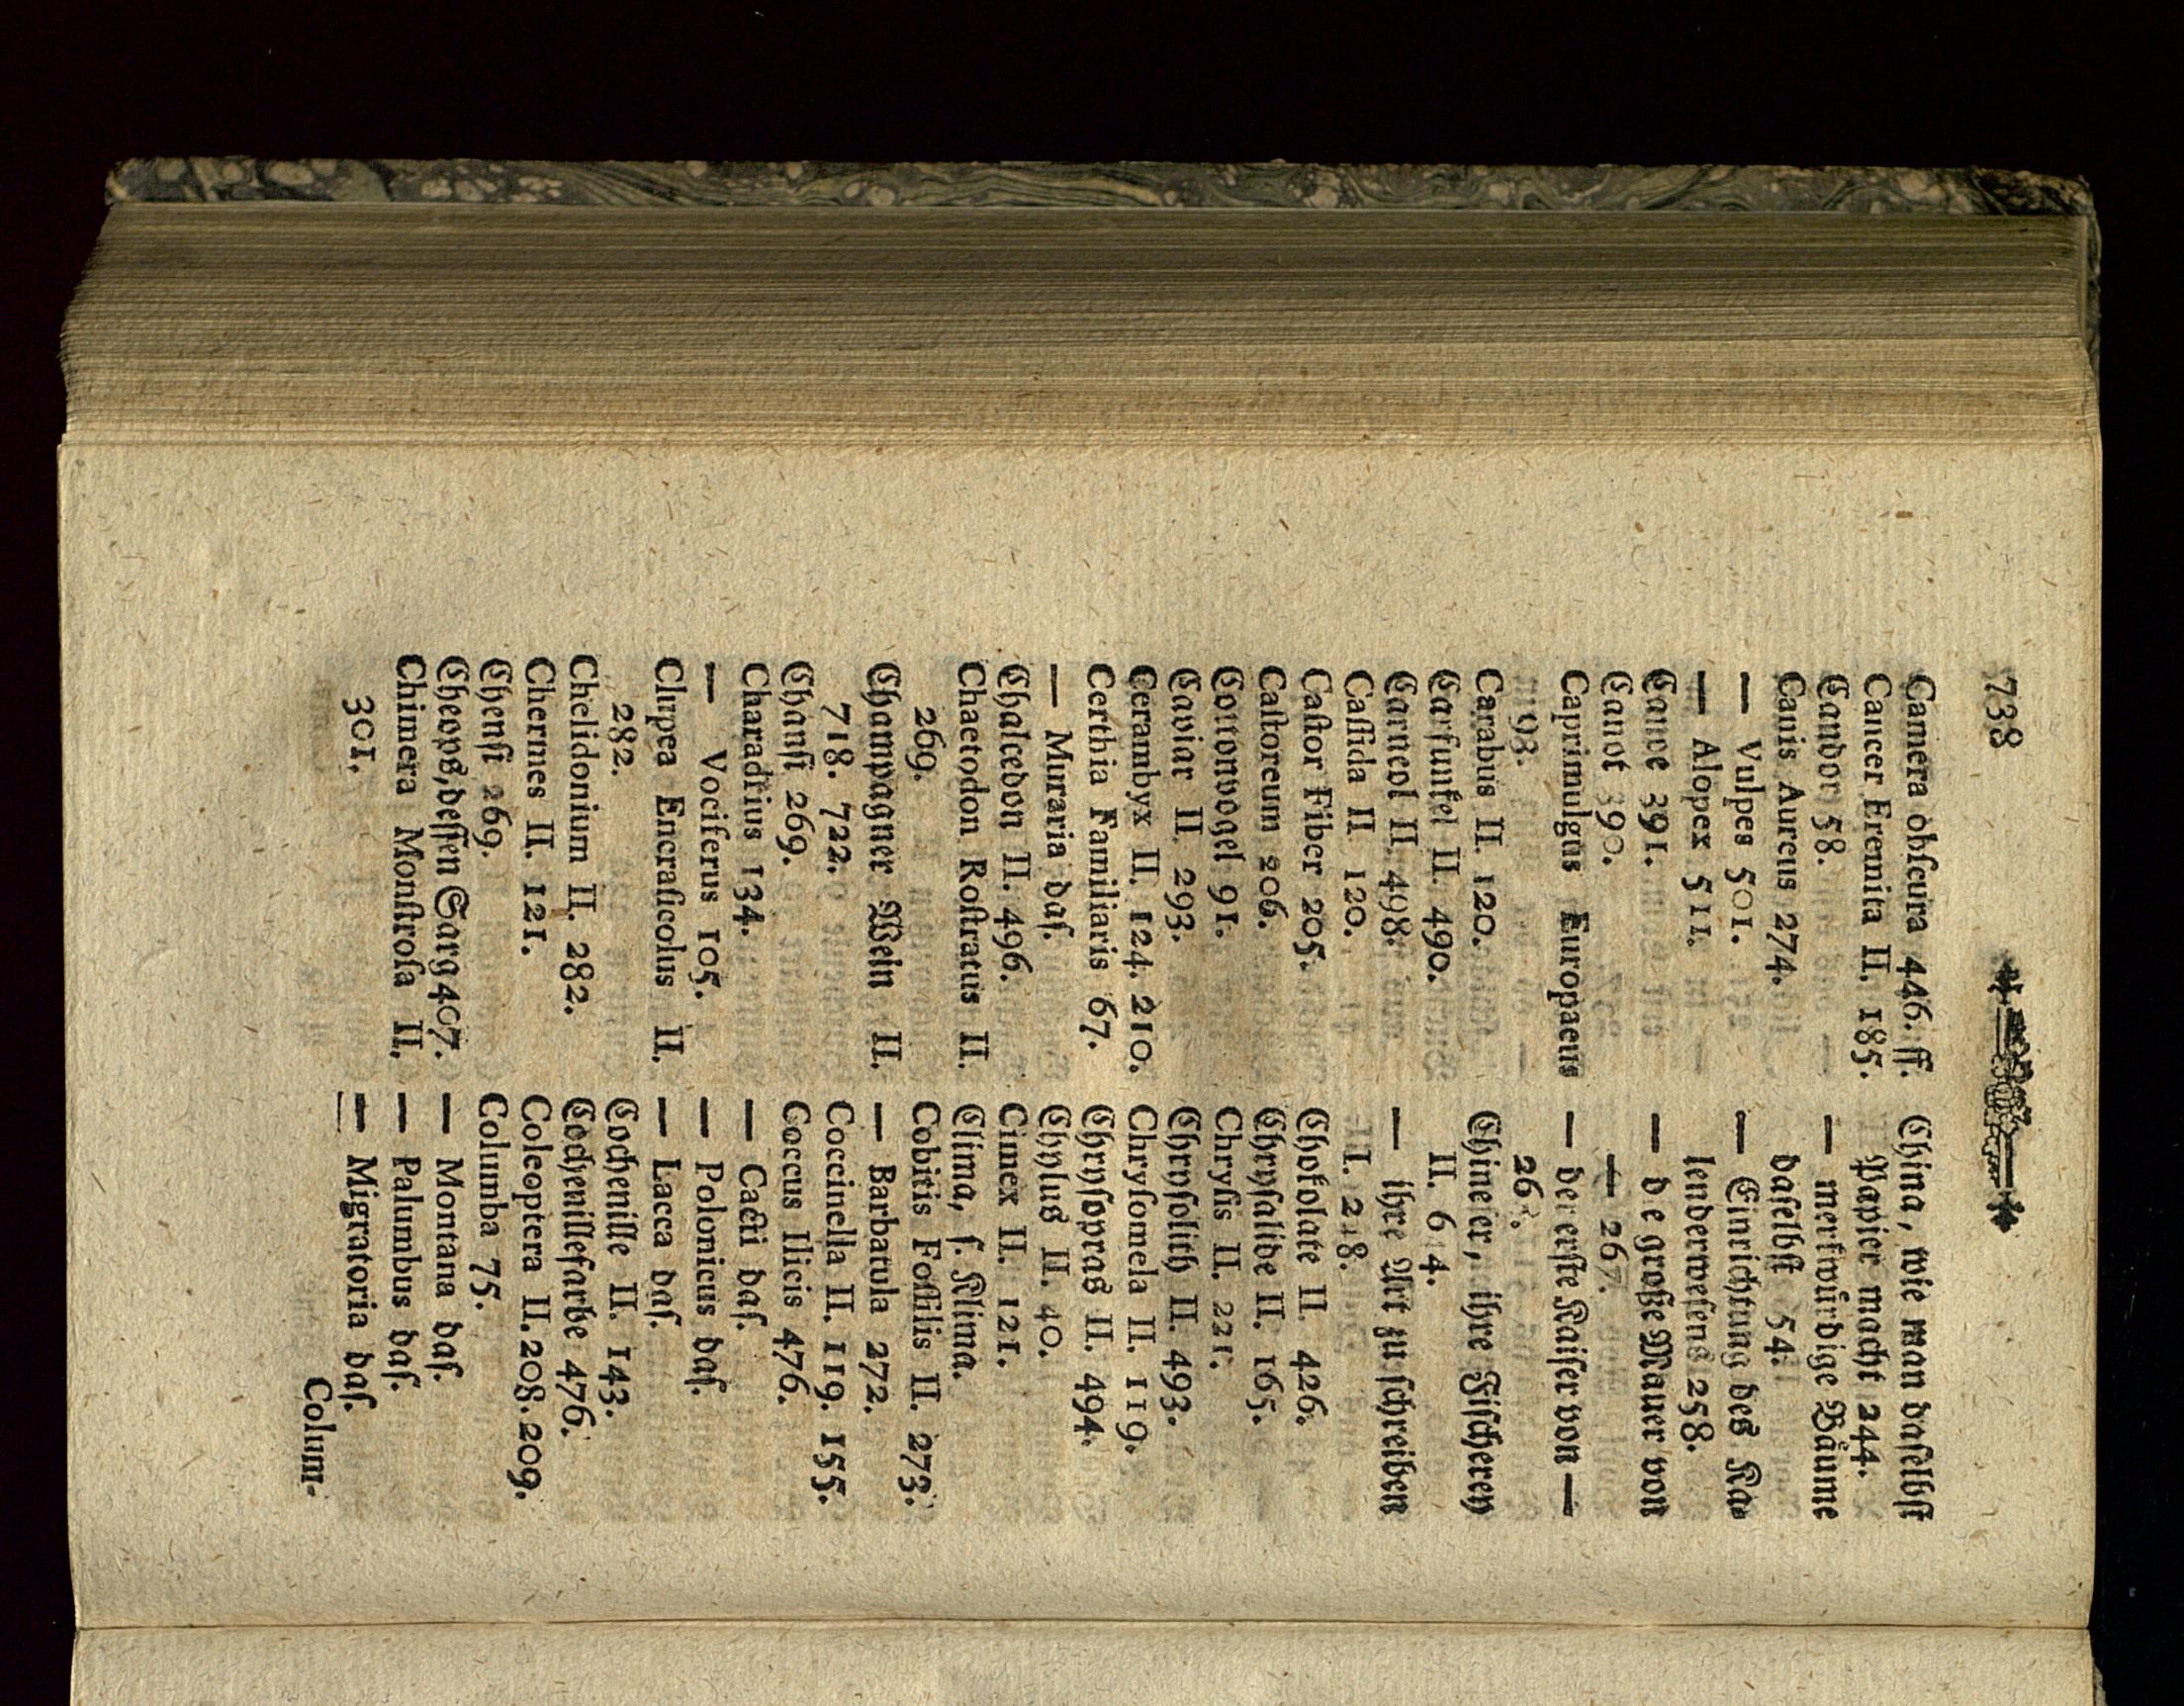 738
Camera obſcura 446. ff.
Cancer Eremita II. 185.
Candor 58.
Canis Aureus 274.
— Vulpes 501.
— Alopex 511.
Canoe 391.
Canot 390.
Caprimulgus Europaeus
93.
Carabus II. 120.
Carfunkel II. 490.
Carneol II. 498.
Caſſida II 120.
Caſtor Fiber 205.
Caſtoreum 206.
Cottonvogel 91.
Caviar II. 293.
Cerambyx II. 124. 210.
Certhia Familiaris 67.
— Muraria daſ.
Chalcedon II. 496.
Chaetodon Roſtratus II.
269.
Champagner Wein II.
718. 722.
Chanſi 269.
Charadrius 134.
— Vociferus 105.
Clupea Encraſicolus II.
282.
Chelidonium II. 282.
Chermes II. 121.
Chenſi 269.
Cheops, deſſen Sarg 407.
Chimera Monſtroſa II.
301.
China, wie man daſelbſt
Papier macht 244.
— merkwürdige Bäume
daſelbſt 54.
— Einrichtung des Ka-
lenderweſens 258.
— die große Mauer von
— 267.
— der erſte Kaiſer von —
26
Chineſer, ihre Fiſcherey
II. 6 4.
— ihre Art zu ſchreiben
II. 218.
Chokolate II. 426.
Chryſalide II. 165.
Chryſis II. 221.
Chryſolith II. 493.
Chryſomela II. 119.
Chryſopras II. 494.
Chylus II. 40.
Cimex II. 121.
Clima, ſ. Klima.
Cobitis Foſſilis II. 273.
— Barbatula 272.
Coccinella II. 119. 155.
Coccus Ilicis 476.
— Cacti daſ.
— Polonicus daſ.
— Lacca daſ.
Cochenille II. 143.
Cochenillefarbe 476.
Coleoptera II. 208. 209.
Columba 75.
— Montana daſ.
— Palumbus daſ.
— Migratoria daſ.
Colum-